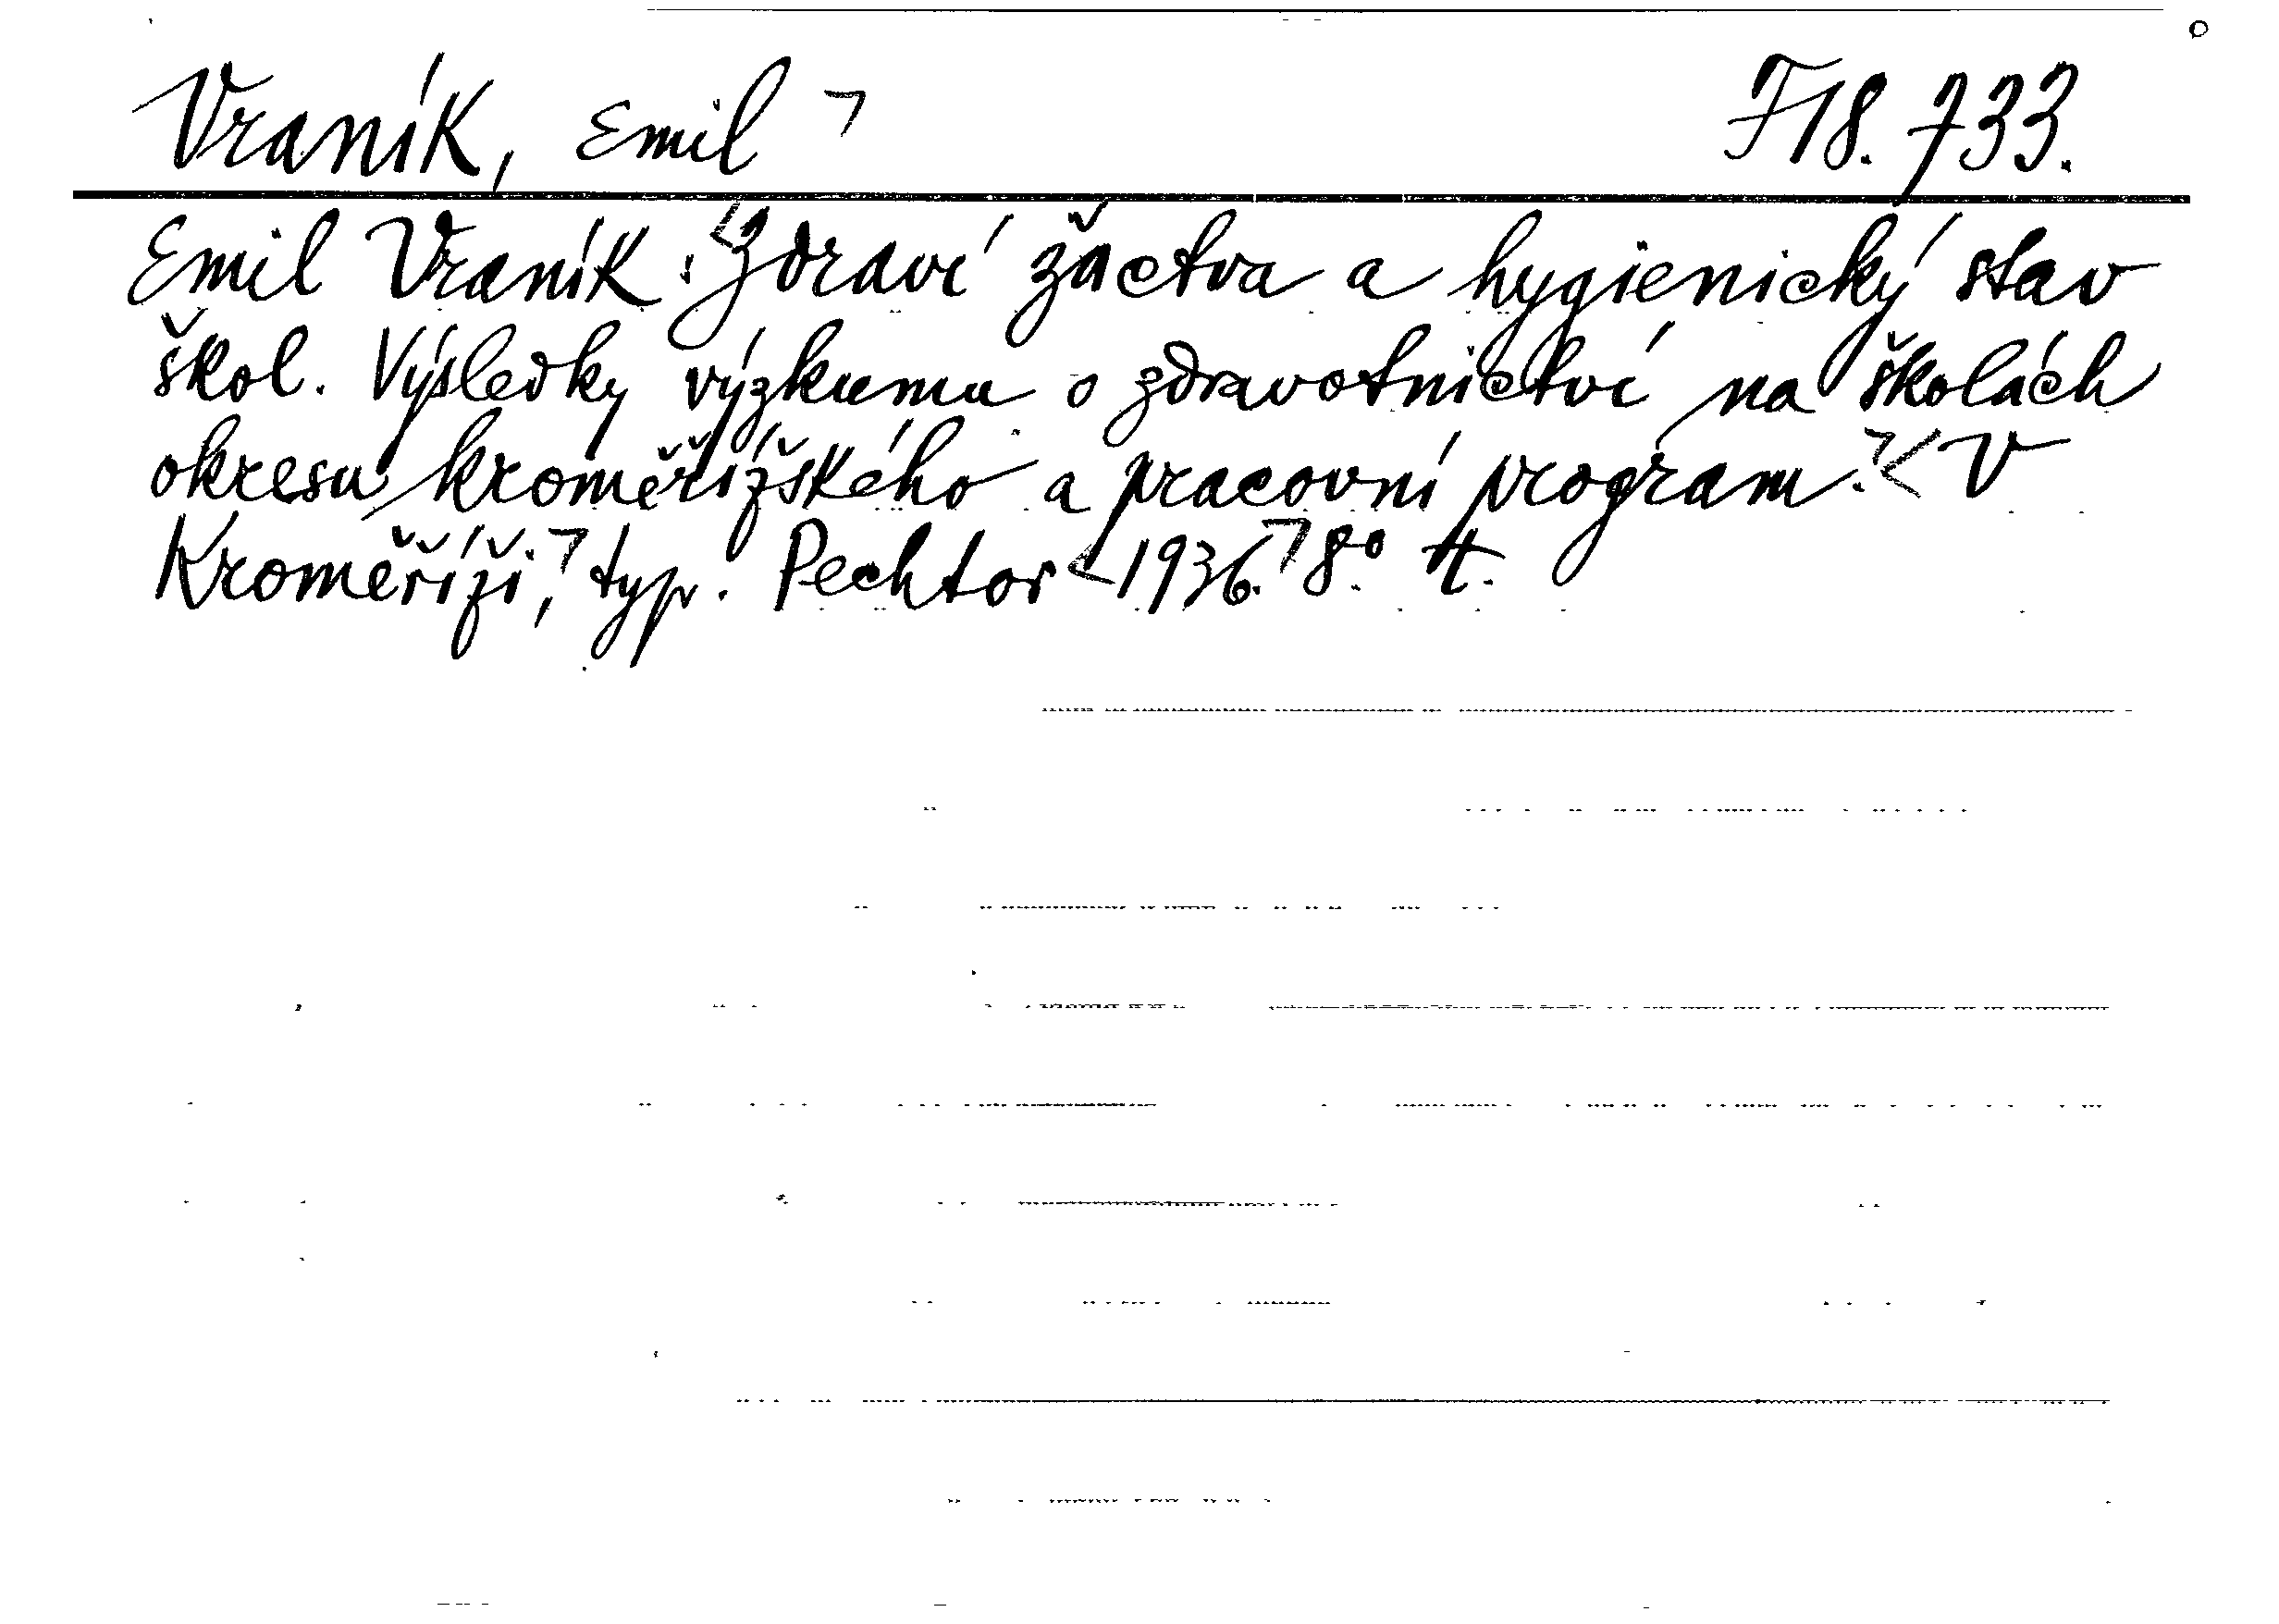 Vraník, Emil ꓶ F 18.733.
Emil Vraník: <Zdraví žactva a hygienický stav
škol. Výsledky výzkumu o zdravotnictví na školách
okresu kroměřížského a pracovní program.ꓶ< V
Kroměříži,ꓶ typ. Pechtor <1936.ꓶ 8° 4.